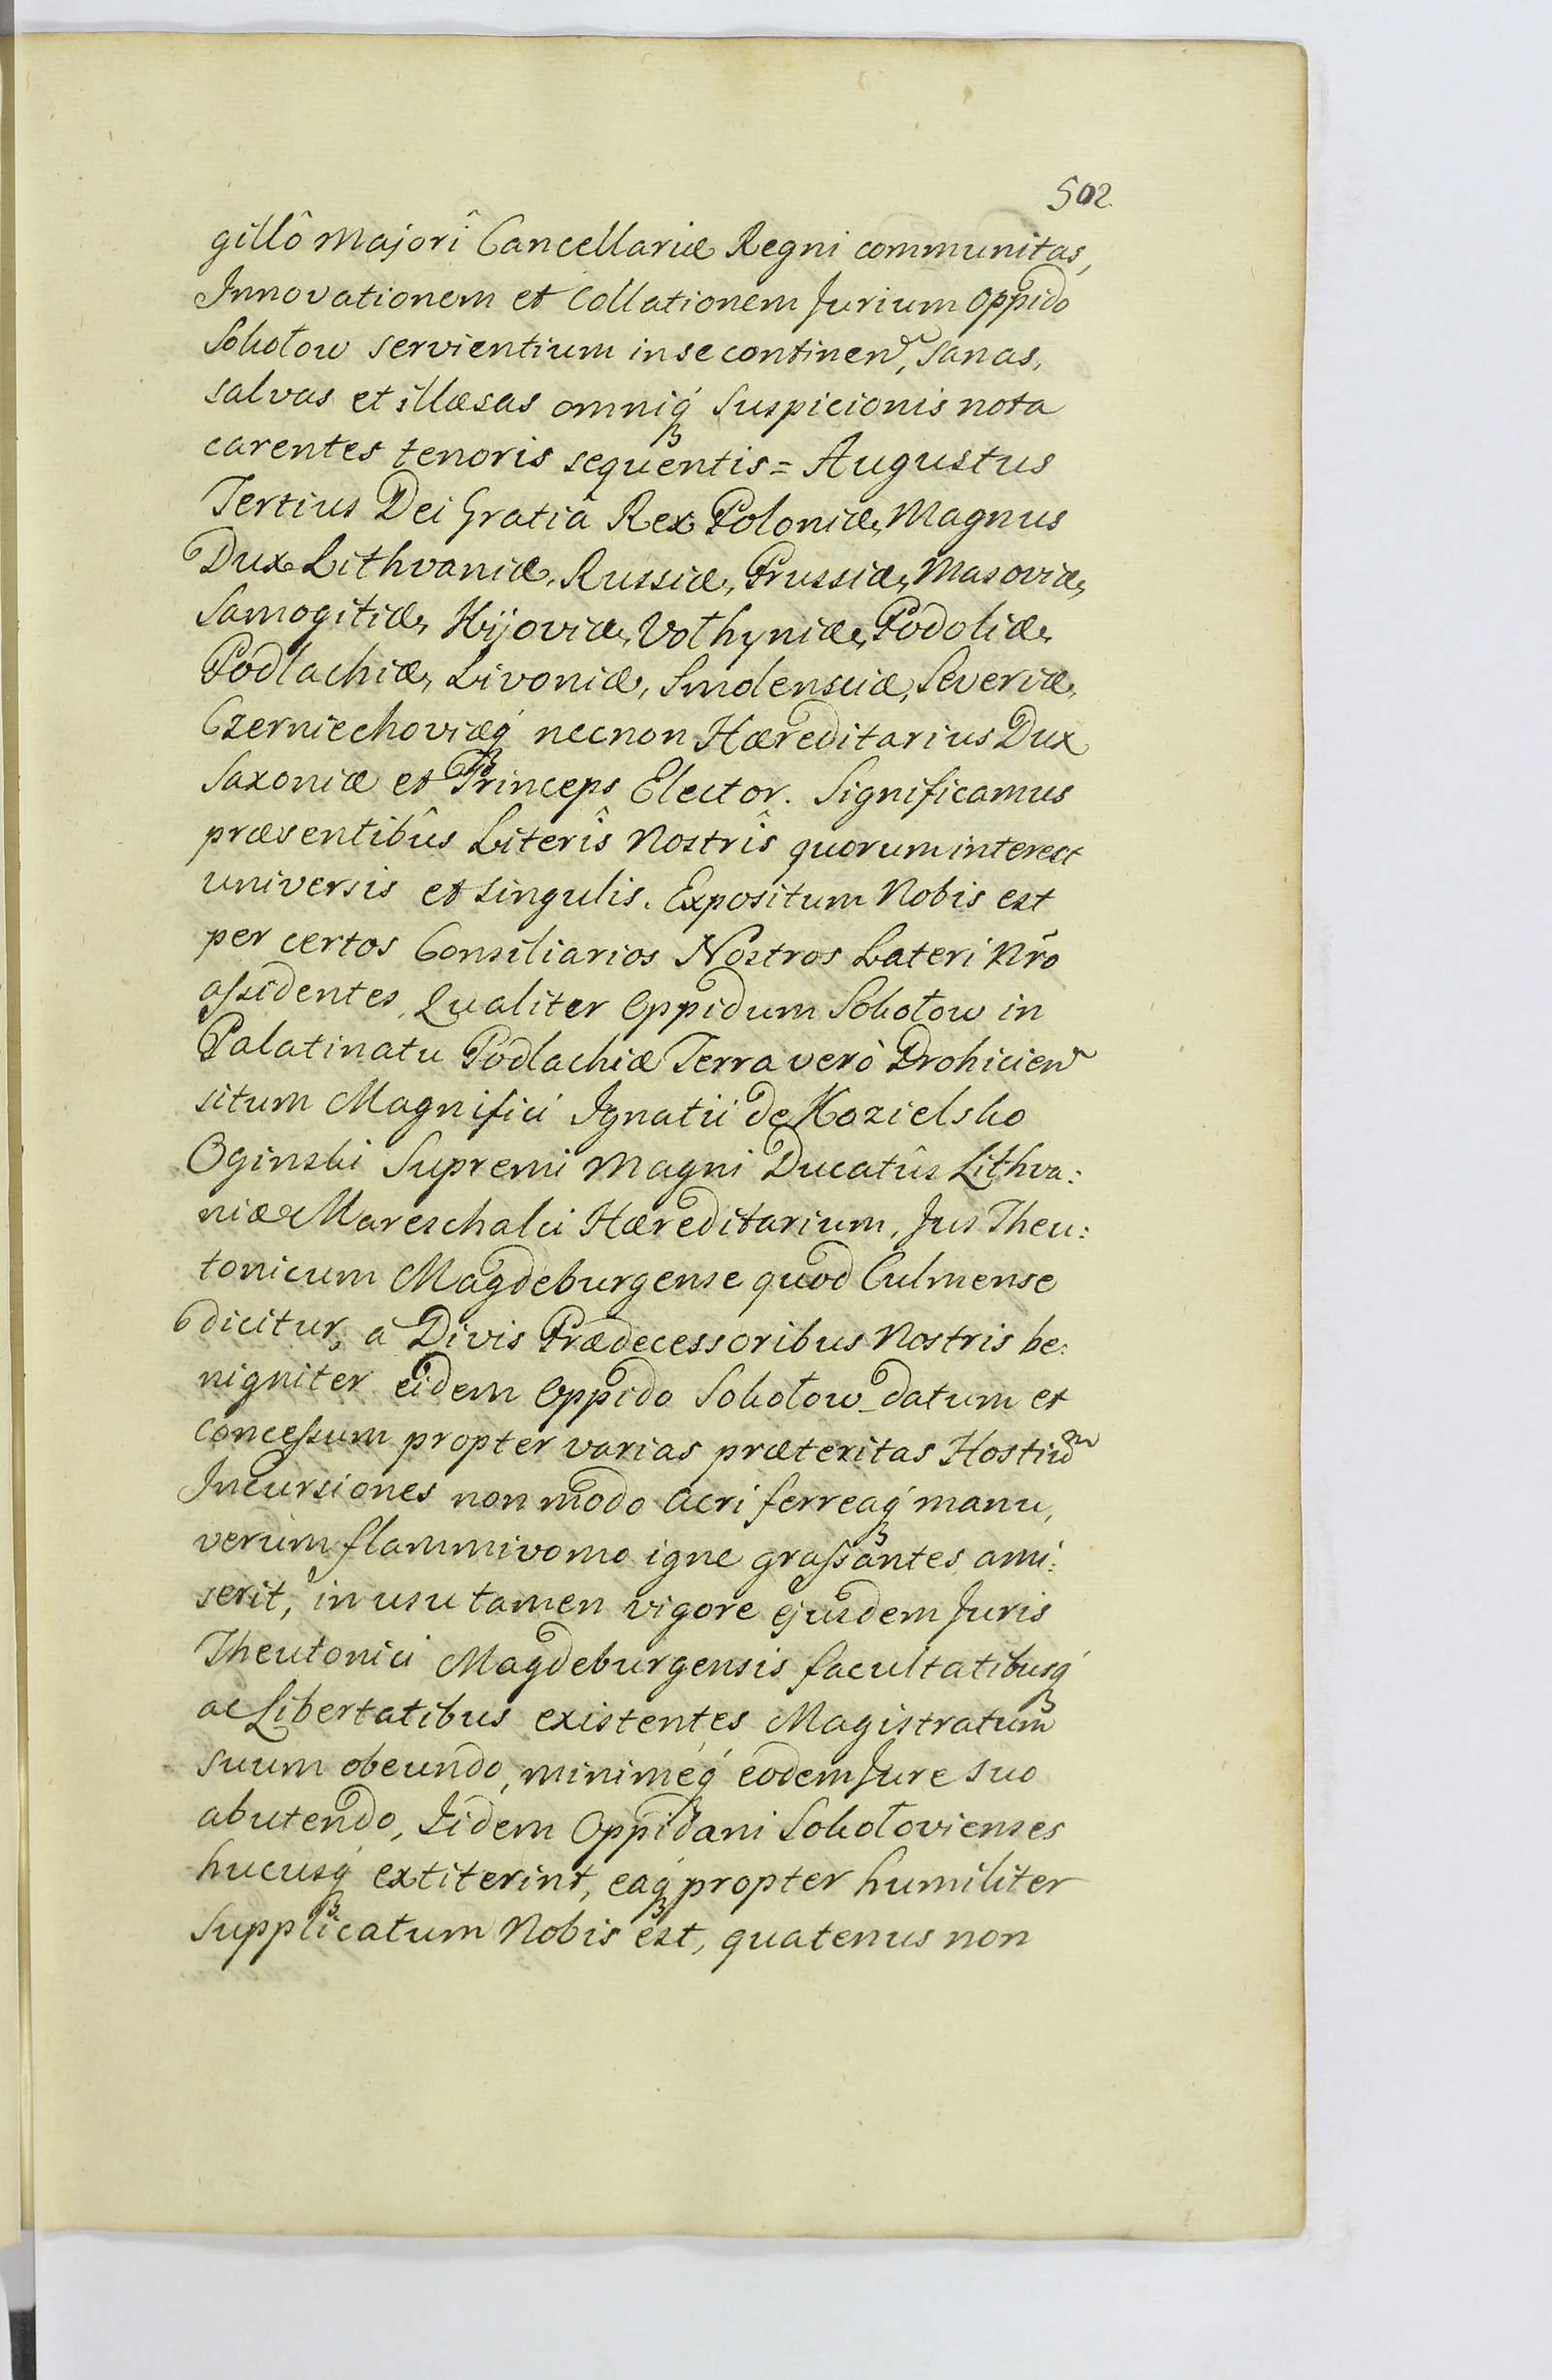 502.
gillô Majorî Cancellariæ Regni communitas,
Innovationem et Collationem Jurium Oppido
Sokołow servientium in se continen, Sanas,
salvas et illæsas omniq́ suspicionis nota
carentes tenoris sequentis = Augustus
Tertius Dei Gratiâ Rex Poloniæ, Magnus
Dux Lithvaniæ, Russiæ, Prussiæ, Masoviæ,
Samogitiæ, Kijoviæ, Vołhyniæ, Podoliæ,
Podlachiæ, Livoniæ, Smolensciæ, Severiæ,
Czerniechoviæq́ necnon Hæreditarius Dux
Saxoniæ et Princeps Elector. Significamus
præsentibûs Literîs Nostrîs quorum interest
universis et singulis. Expositum Nobis est
per certos Consiliarios Nostros Lateri Nr̃o
assidentes, Qualiter Oppidum Sokołow in
Palatinatu Podlachiæ Terra verò Drohicien
situm Magnifici Ignatii de Kozielsko
Oginski Supremi Magni Ducatûs Lithva:
niæ Mareschalci Hæreditarium, Jus Theu:
tonicum Magdeburgense quod Culmense
dicitur, â Divis Prædecessoribus Nostris be:
nigniter eidem Oppido Sokołow datum et
concessum propter varias præteritas Hostiũ
Incursiones non modo acri ferreaq́ manu,
verùm flammivomo igne grassantes, ami:
serit, in usu tamen vigore ejusdem Juris
Theutonici Magdeburgensis facultatibusq́
ac Libertatibus existentes, Magistratum
suum obeundo, minimeq́ eodem Jure suo
abutendo, Iidem Oppidani Sokołovienses
hucusq́ extiterint, eaq́ propter humiliter
Supplicatum Nobis est, quatenus non